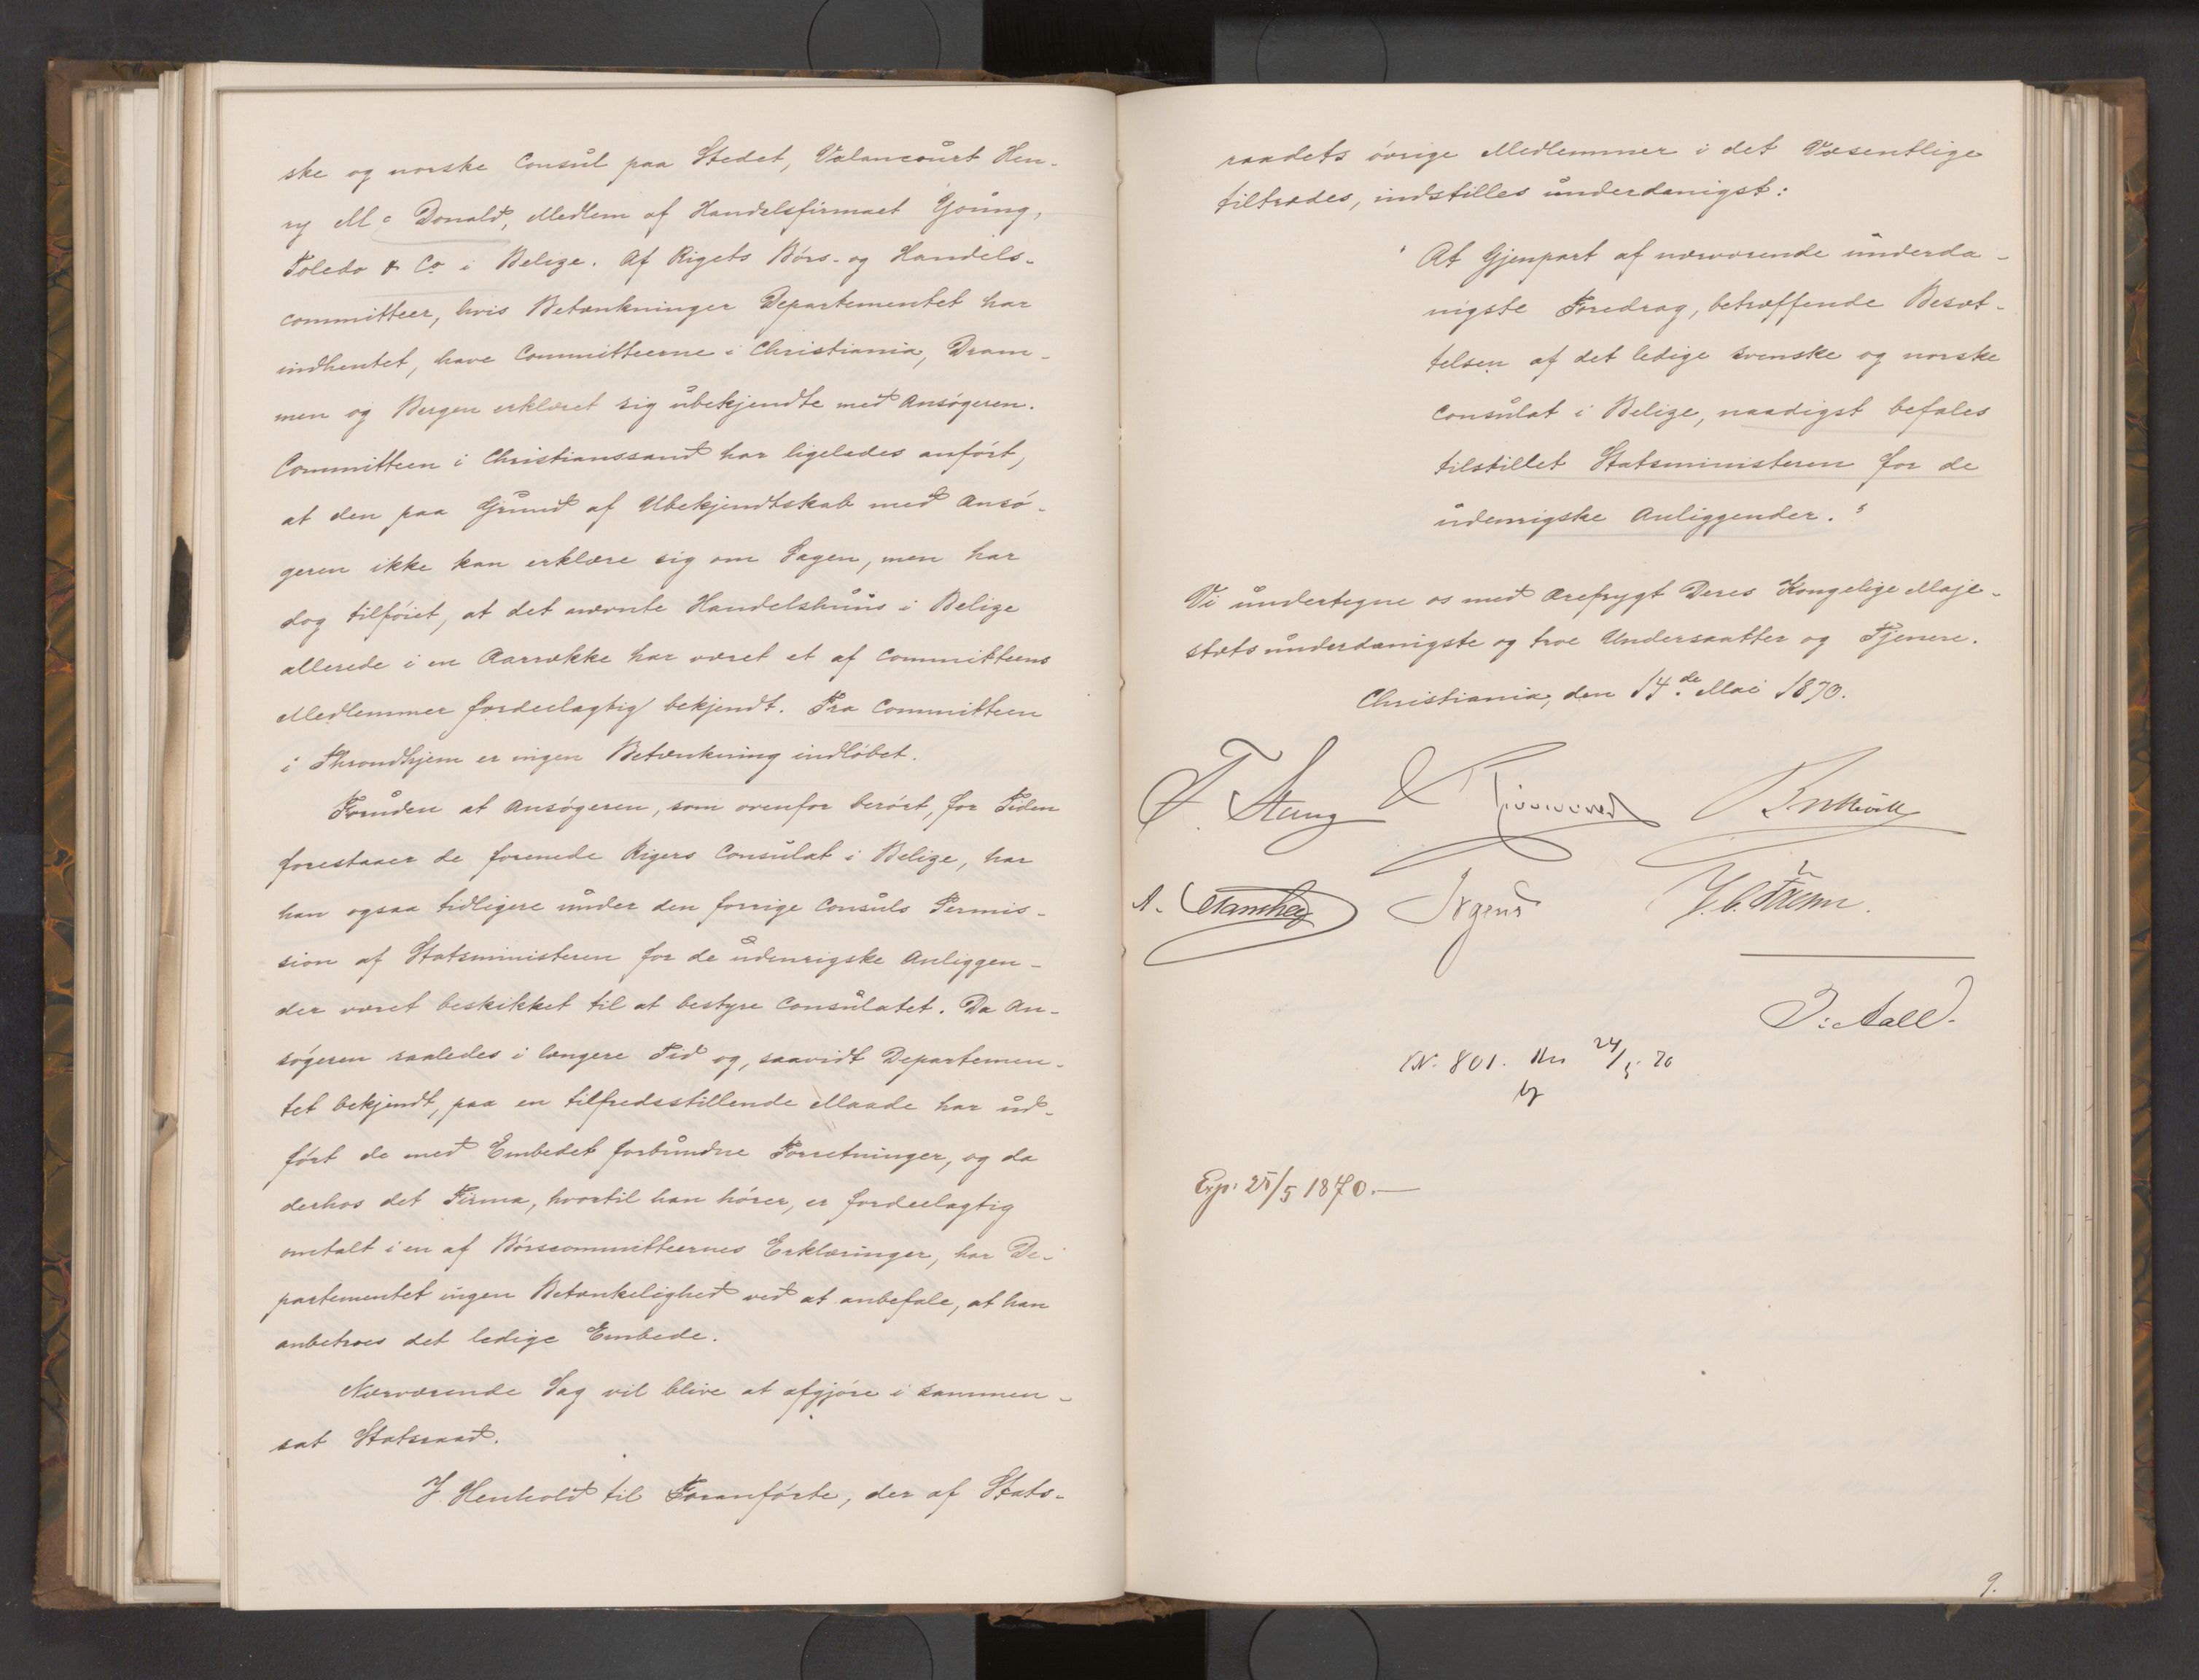 ske og norske Consul paa Stedet, Valancourt Hen-
ry Mc Donald, Medlem af Handelsfirmaet Young,
Toledo & Co i Belize. Af Rigets Börs- og Handels-
committeer, hvis Betænkninger Departementet har
indhentet, have Committeerne i Christiania, Dram-
men og Bergen erklæret sig ubekjendte med Ansögeren.
Committeen i Christianssand har ligeledes anfört,
at den paa Grund af Ubekjendtskab med Ansö-
geren ikke kan erklære sig om Sagen, men har
dog tilföiet, at det nævnte Handelshuus i Belize
allerede i en Aarrække har været et af Committeens
Medlemmer fordeelagtig bekjendt. Fra Committeen
i Throndhjem er ingen Betænkning indlöbet.
Foruden at Ansögeren, som ovenfor berört, for Tiden
forestaaer de forenede Rigers Consulat i Belize, har
han ogsaa tidligere under den forrige Consuls Permis-
sion af Statsministeren for de udenrigske Anliggen-
der været beskikket til at bestyre Consulatet. Da An-
sögeren saaledes i længere Tid og, saavidt Departemen-
tet bekjendt, paa en tilfredsstillende Maade har ud-
fört de med Embedet forbundne Forretninger, og da
derhos det Firma, hvortil han hörer, er fordeelagtig
omtalt i en af Börscommitteernes Erklæringer, har De-
partementet ingen Betænkelighed ved at anbefale, at han
anbetroes det ledige Embede.
Nærværende Sag vil blive at afgjöre i sammen-
sat Statsraad.
I Henhold til Foranförte, der af Stats-
raadets övrige Medlemmer i det Væsentlige
tiltrædes, indstilles underdanigst:
"At Gjenpart af nærværende underda-
nigste Foredrag, betræffende Besæt-
telsen af det ledige svenske og norske
Consulat i Belize, naadigst befales
tilstillet Statsministeren for de
udenrigske Anliggender."
Vi undertegne os med Ærefrygt Deres Kongelige Maje-
stæts underdanigste og troe Undersaatter og Tjenere.
Christiania, den 14de Mai 1870.
F. Stang
Irgens
J. Aall.
N. 801. 24/5 70
Exp: 25/5 1870.
9.